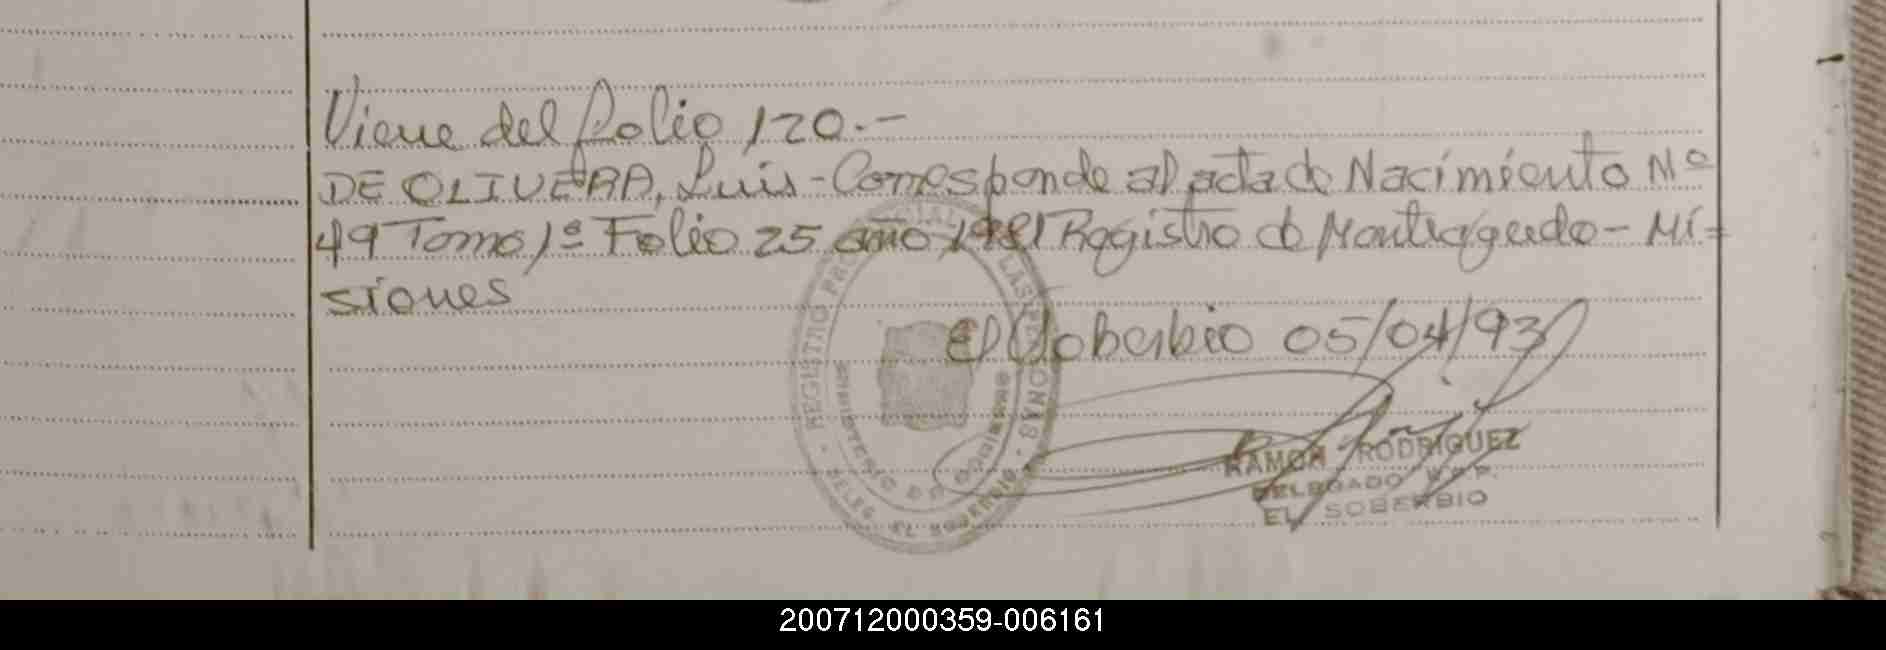 Viene del folio 120.-
DE OLIVERA, Luis - Corresponde al acta de Nacimiento Nº
49 Tomo 1º Folio 25 año 1981 Registro de Monteagudo - Mi-
siones
El Soberbio 05/04/93
REGISTRO PROVINCIAL LAS PERSONAS
MINISTERIO DE GOBIERNO
DELEG. EL SOBERBIO
RAMON RODRIGUEZ
DELEGADO R.P.P.
EL SOBERBIO
200712000359-006161